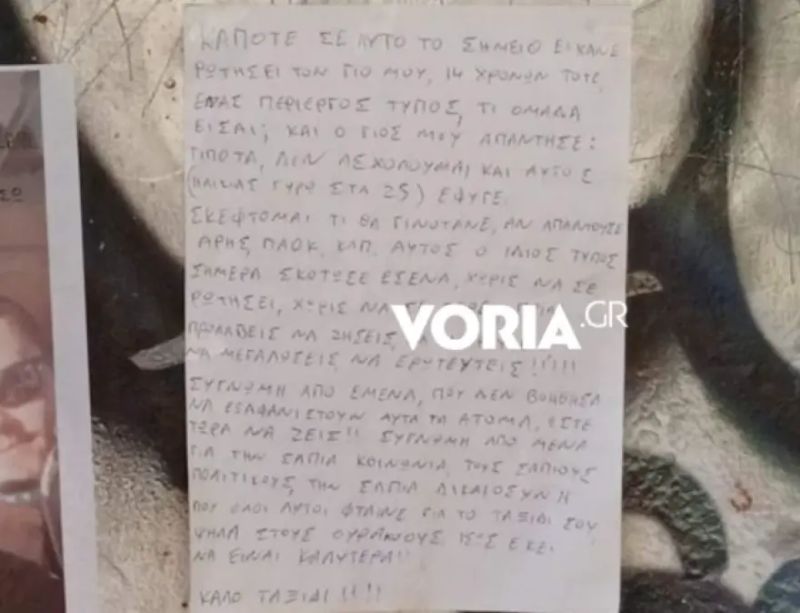 ΚΑΠΟΤΕ ΣΕ ΑΥΤΟ ΤΟ ΣΗΜΕΙΟ ΕΙΧΑΝΕ
ΡΩΤΗΣΕΙ ΤΟΝ ΓΙΟ ΜΟΥ, 14 ΧΡΟΝΩΝ ΤΟΤΕ
ΕΝΑΣ ΠΕΡΙΕΡΓΟΣ ΤΥΠΟΣ, ΤΙ ΟΜΑΔΑ
ΕΙΣΑΙ; ΚΑΙ Ο ΓΙΟΣ ΜΟΥ ΑΠΑΝΤΗΣΕ:
ΤΙΠΟΤΑ, ΔΕΝ ΑΣΧΟΛΟΥΜΑΙ ΚΑΙ ΑΥΤΟΣ
(ΗΛΙΚΙΑΣ ΓΥΡΩ ΣΤΑ 25) ΕΦΥΓΕ.
ΣΩ
ΣΚΕΦΤΟΜΑΙ ΤΙ ΘΑ ΓΙΝΟΤΑΝΕ, ΑΝ ΑΠΑΝΤΟΥΣΕ
ΑΡΗΣ, ΠΑΟΚ, ΚΛΠ. ΑΥΤΟΣ Ο ΙΔΙΟΣ ΤΥΠΟΣ
ΣΗΜΕΡΑ ΣΚΟΤΩΣΕ ΕΣΕΝΑ, ΧΩΡΙΣ ΝΑ ΣΕ
ΡΩΤΗΣΕΙ, ΧΩΡΙΣ ΝΑ
ΠΡΟΛΑΒΕΙΣ ΝΑ ΖΗΣΕΙΣ,
ΝΑ ΜΕΓΑΛΩΣΕΙΣ, ΝΑ ΕΡΩΤΕΥΤΕΙΣ!!!!!
ΣΥΓΝΩΜΗ ΑΠΟ ΕΜΕΝΑ, ΠΟΥ ΔΕΝ ΒΟΗΘΗΣΑ
ΝΑ ΕΞΑΦΑΝΙΣΤΟΥΝ ΑΥΤΑ ΤΑ ΑΤΟΜΑ, ΩΣΤΕ
ΤΩΡΑ ΝΑ ΖΕΙΣ!! ΣΥΓΝΩΜΗ ΑΠΟ ΜΕΝΑ
ΓΙΑ ΤΗΝ ΣΑΠΙΑ ΚΟΙΝΩΝΙΑ, ΤΟΥΣ ΣΑΠΙΟΥΣ
ΠΟΛΙΤΙΚΟΥΣ, ΤΗΝ ΣΑΠΙΑ ΔΙΚΑΙΟΣΥΝΗ
ΠΟΥ ΟΛΟΙ ΑΥΤΟΙ ΦΤΑΙΝΕ ΓΙΑ ΤΟ ΤΑΞΙΔΙ ΣΟΥ
ΨΗΛΑ ΣΤΟΥΣ ΟΥΡΑΝΟΥΣ. ΙΣΩΣ ΕΚΕΙ
ΝΑ ΕΙΝΑΙ ΚΑΛΥΤΕΡΑ!!
ΚΑΛΟ ΤΑΞΙΔΙ!!!!
VORIA.GR